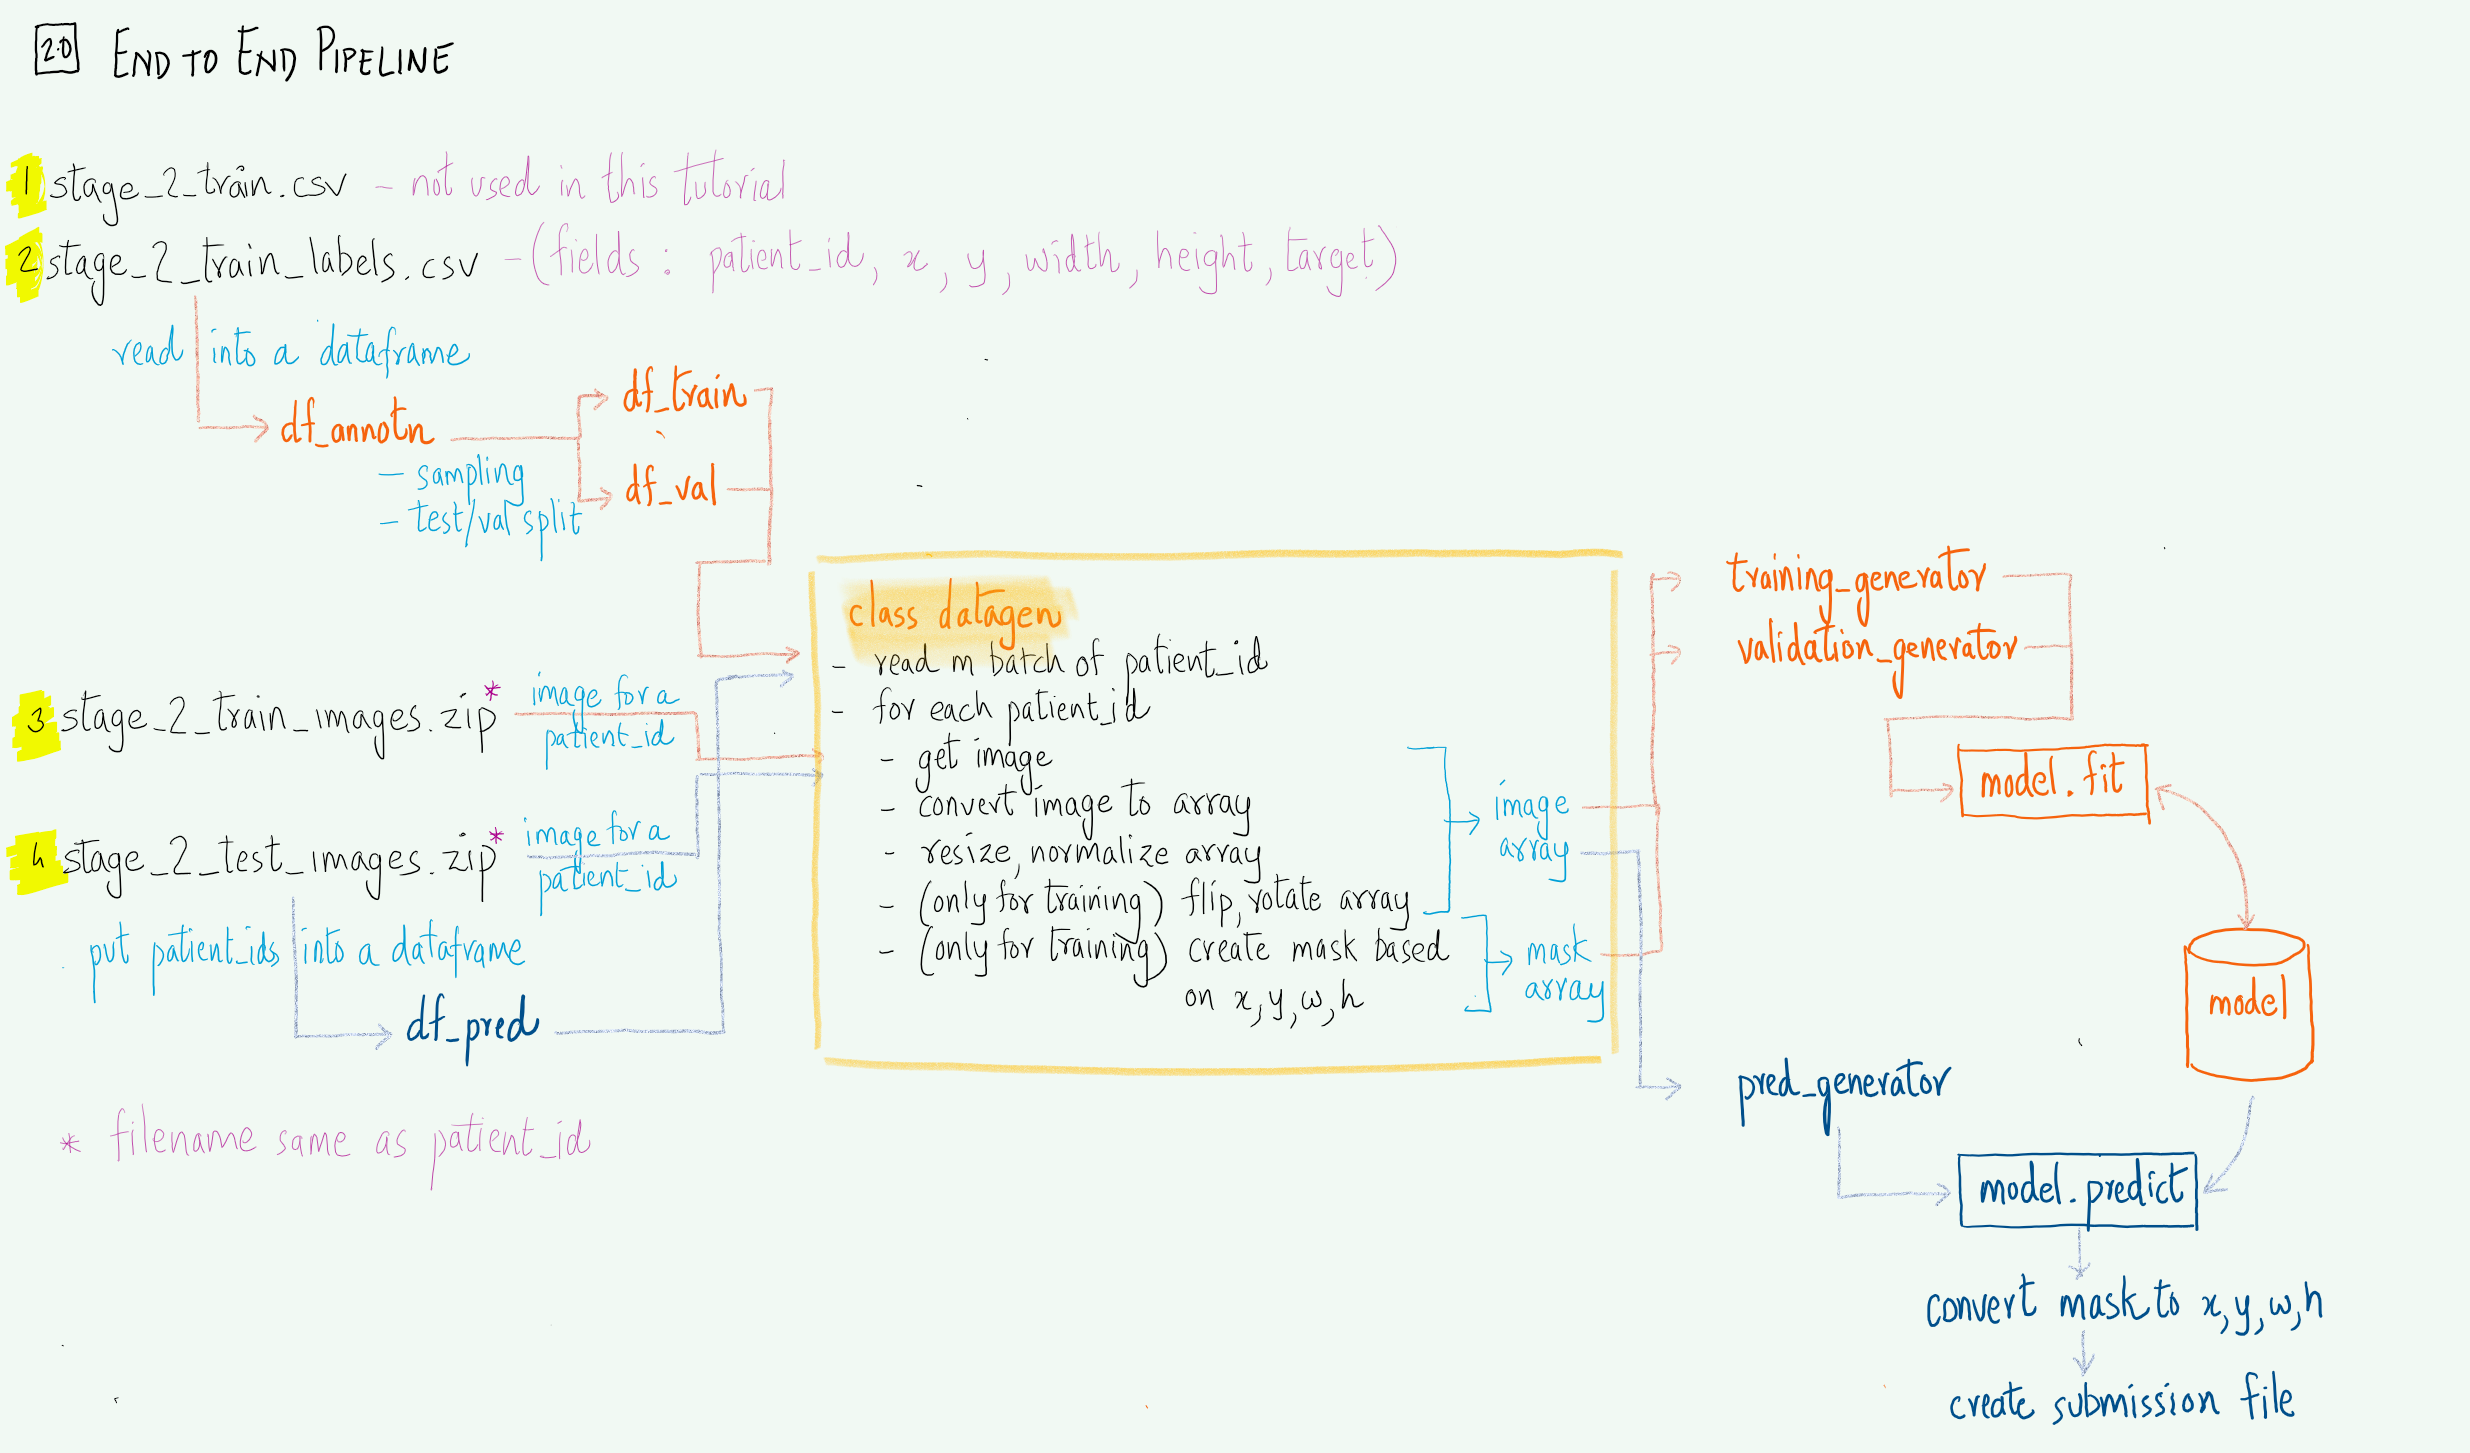 2.0 END TO END PIPELINE
1 stage_2_train.csv - not used in this tutorial
2 stage_2_train_labels.csv - (fields : patient_id, x, y, width, height, target)
read into a dataframe
df_annotn
- sampling
- test/val split
df_train
df_val
3 stage_2_train_images.zip*
image for a
patient_id
4 stage_2_test_images.zip*
image for a
patient_id
put patient_ids into a dataframe
df_pred
* filename same as patient_id
class datagen
- read m batch of patient_id
- for each patient_id
- get image
- convert image to array
- resize, normalize array
- (only for training) flip, rotate array
- (only for training) create mask based
on x, y, w, h
image
array
mask
array
training_generator
validation_generator
model.fit
model
pred_generator
model.predict
convert mask to x, y, w, h
create submission file